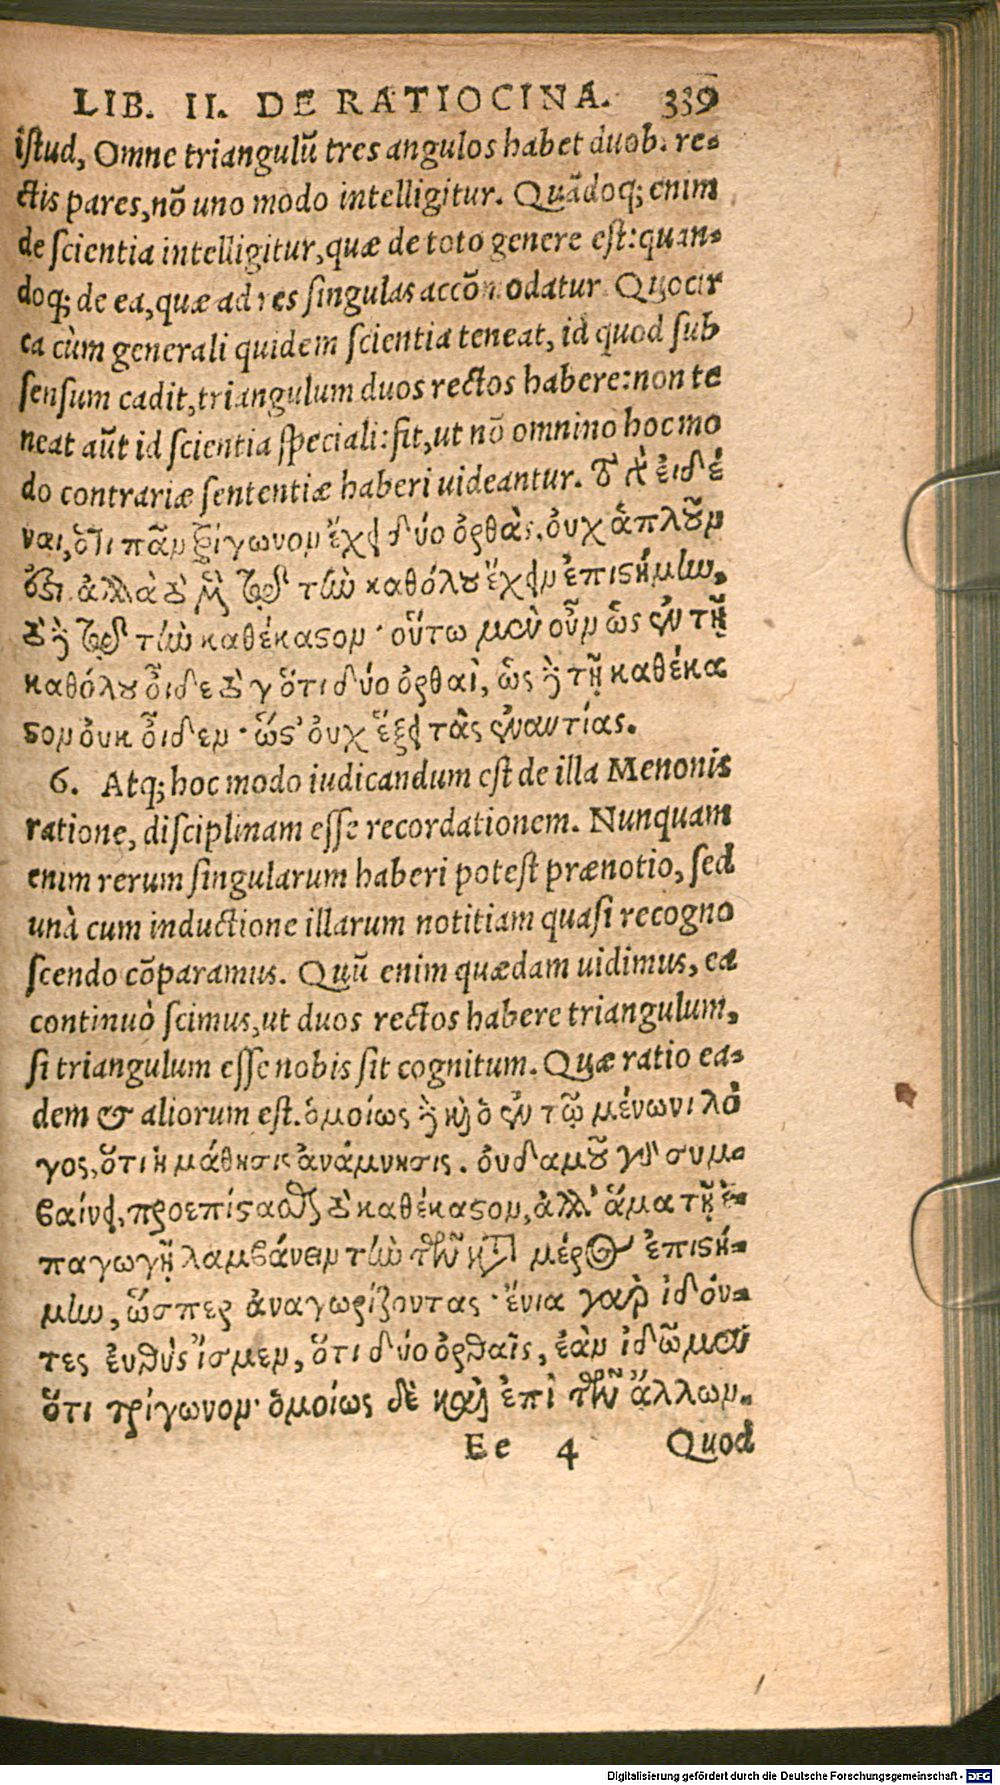 LIB. II. DE RATIOCINA. 339
iſtud, Omne triangulũ tres angulos habet duob. re-
ctis pares, nõ uno modo intelligitur. Quãdoq; enim
de ſcientia intelligitur, quæ de toto genere eſt: quan-
doq; de ea, quæ ad res ſingulas accõmodatur. Quocir
ca cùm generali quidem ſcientia teneat, id quod ſub
ſenſum cadit, triangulum duos rectos habere: non te
neat aũt id ſcientia ſpeciali: fit, ut nõ omnino hoc mo
do contrariæ ſententiæ haberi uideantur. τὸ γὰ εἰδέ
ναι, ὅτι πᾶν τρίγωνον ἔχει δύο ὀρθὰς, οὐχ ἁπλοῦν
ὅτι. ἀλλὰ τὸ μὲν τῷ τὴν καθόλου ἔχειν ἐπιστήμην,
τὸ δὲ τῷ τὴν καθέκαστον· οὕτω μεν οὖν ὡς ἐν τῇ
καθόλου οἶδε τὸ γ ὅτι δύο ὀρθαὶ, ὡς δὲ τῇ καθέκα
στον οὐκ οἶδεν· ὥστ' οὐχ ἕξει τὰς ἐναντίας.
6. Atq; hoc modo iudicandum eſt de illa Menonis
ratione, diſciplinam eſſe recordationem. Nunquam
enim rerum ſingularum haberi poteſt prænotio, ſed
unà cum inductione illarum notitiam quaſi recogno
ſcendo cõparamus. Quũ enim quædam uidimus, ea
continuò ſcimus, ut duos rectos habere triangulum,
ſi triangulum eſſe nobis ſit cognitum. Quæ ratio ea-
dem & aliorum eſt. ὁμοίως δὲ καὶ ὁ ἐν τῷ μένωνι λό
γος, ὅτι ἡ μάθησις ἀνάμνησις. οὐδαμοῦ γὰρ συμ-
βαίνει, προεπίστασθαι τὸ καθέκαστον, ἀλλ' ἅμα τῇ ἐ-
παγωγῇ λαμβάνειν τὴν τῶν κατὰ μέρος ἐπιστή-
μην, ὥσπερ ἀναγωρίζοντας· ἔνια γαρ ἰδόν-
τες εὐθὺς ἴσμεν, ὅτι δύο ὀρθαῖς, ἐὰν ἰδῶμεν
ὅτι τρίγωνον· ὁμοίως δὲ καὶ ἐπὶ τῶν ἄλλων.
Ee 4 Quod
Digitalisierung gefördert durch die Deutsche Forschungsgemeinschaft - DFG